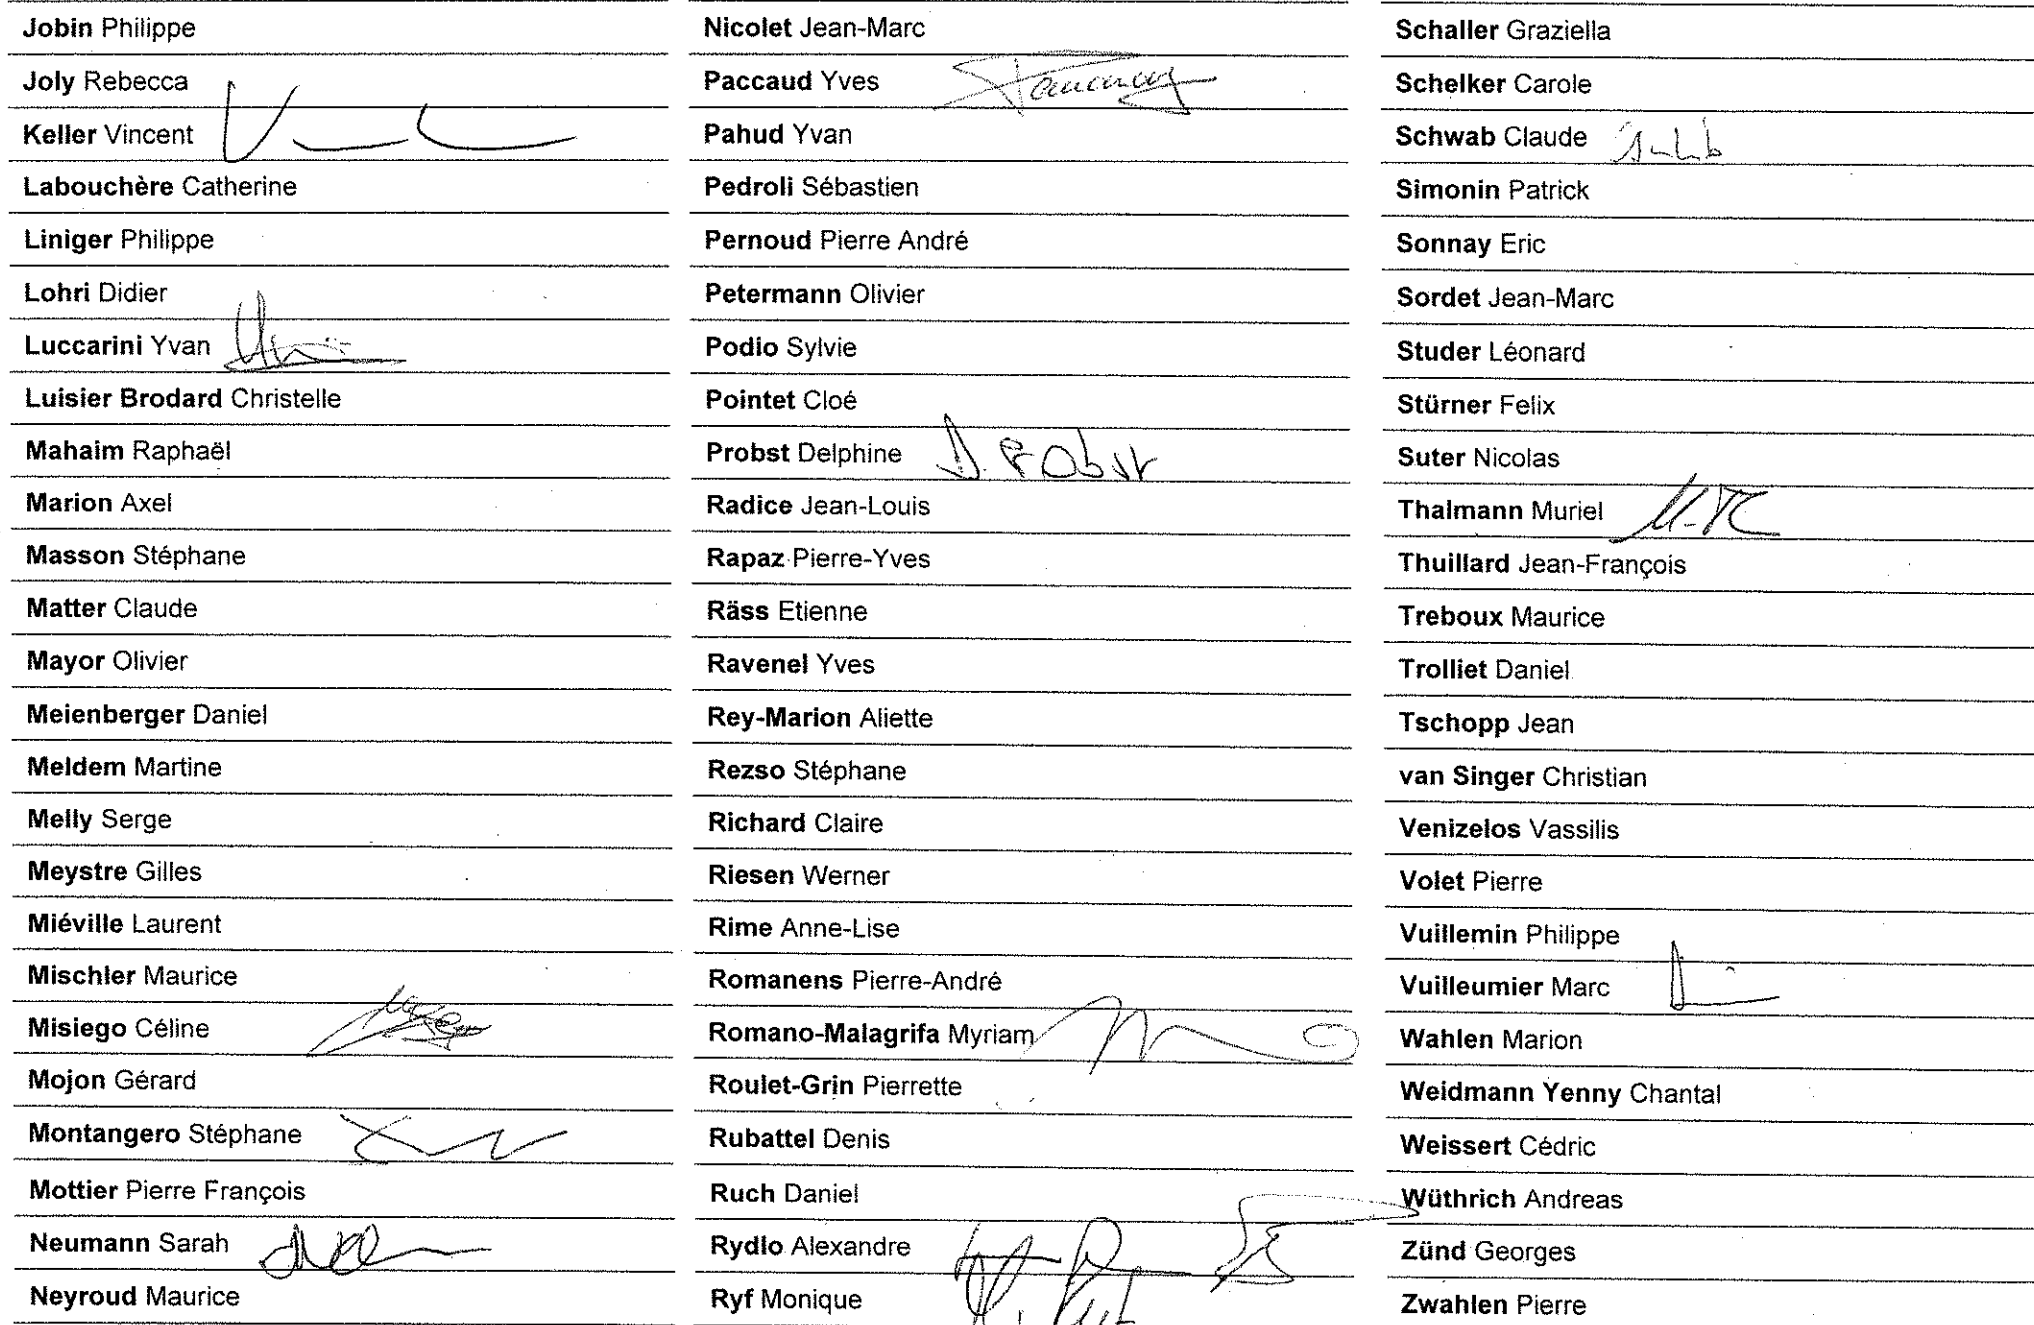 Jobin Philippe
Joly Rebecca
Keller Vincent
Labouchère Catherine
Liniger Philippe
Lohri Didier
Luccarini Yvan
Luisier Brodard Christelle
Mahaim Raphaël
Marion Axel
Masson Stéphane
Matter Claude
Mayor Olivier
Meienberger Daniel
Meldem Martine
Melly Serge
Meystre Gilles
Miéville Laurent
Mischler Maurice
Misiego Céline
Mojon Gérard
Montangero Stéphane
Mottier Pierre François
Neumann Sarah
Neyroud Maurice
Nicolet Jean-Marc
Paccaud Yves
Pahud Yvan
Pedroli Sébastien
Pernoud Pierre André
Petermann Olivier
Podio Sylvie
Pointet Cloé
Probst Delphine D. Probst
Radice Jean-Louis
Rapaz Pierre-Yves
Räss Etienne
Ravenel Yves
Rey-Marion Aliette
Rezso Stéphane
Richard Claire
Riesen Werner
Rime Anne-Lise
Romanens Pierre-André
Romano-Malagrifa Myriam
Roulet-Grin Pierrette
Rubattel Denis
Ruch Daniel
Rydlo Alexandre
Ryf Monique
Schaller Graziella
Schelker Carole
Schwab Claude
Simonin Patrick
Sonnay Eric
Sordet Jean-Marc
Studer Léonard
Stürner Felix
Suter Nicolas
Thalmann Muriel
Thuillard Jean-François
Treboux Maurice
Trolliet Daniel
Tschopp Jean
van Singer Christian
Venizelos Vassilis
Volet Pierre
Vuillemin Philippe
Vuilleumier Marc
Wahlen Marion
Weidmann Yenny Chantal
Weissert Cédric
Wüthrich Andreas
Zünd Georges
Zwahlen Pierre